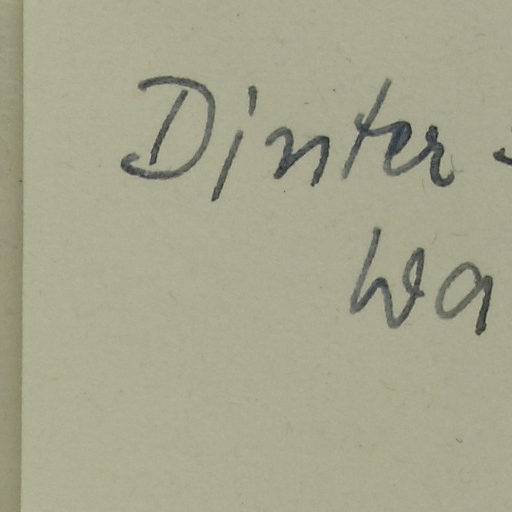 Dinter -
Wa